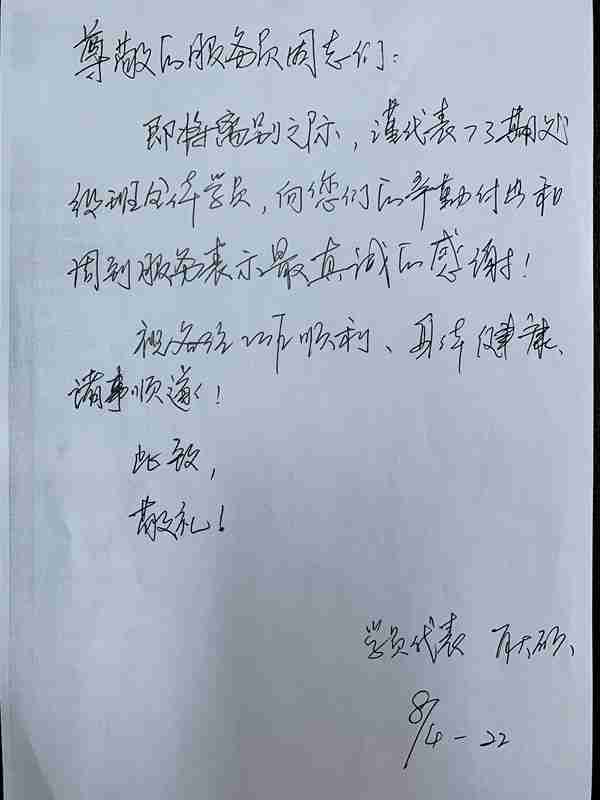 尊敬的服务员同志们:
即将离别之际,谨代表73期处
级班全体学员,向您们的辛勤付出和
周到服务表示最真诚的感谢!
祝各位工作顺利、身体健康、
诸事顺遂!
此致,
敬礼!
学员代表
8/4-22